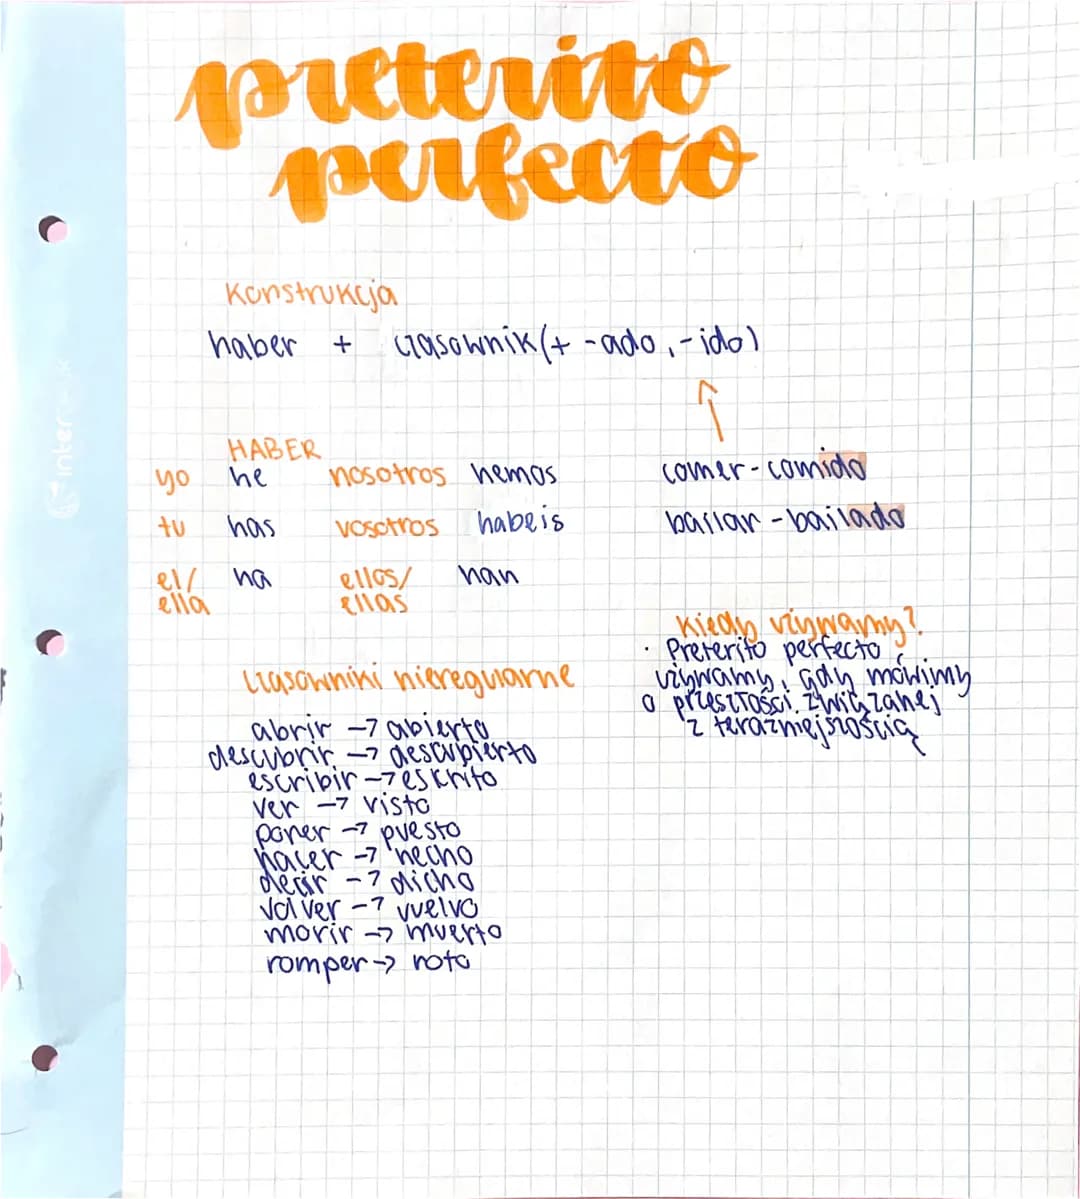 preterito
perfecto
Konstrukcja
haber + czasownik (+ -ado, -ido)
HABER
yo he nosotros hemos
tu has vosotros habeis
el/ ha ellos/ han
ella ellas
comer - comido
bailar - bailado
Czasowniki nieregularne
abrir → abierto
descubrir → descubierto
escribir → escrito
ver → visto
poner → puesto
hacer → hecho
decir → dicho
volver → vuelvo
morir → muerto
romper → roto
Kiedy używamy?
· Preterito perfecto
używamy, gdy mówimy
o przeszłości związanej
z teraźniejszością
inter